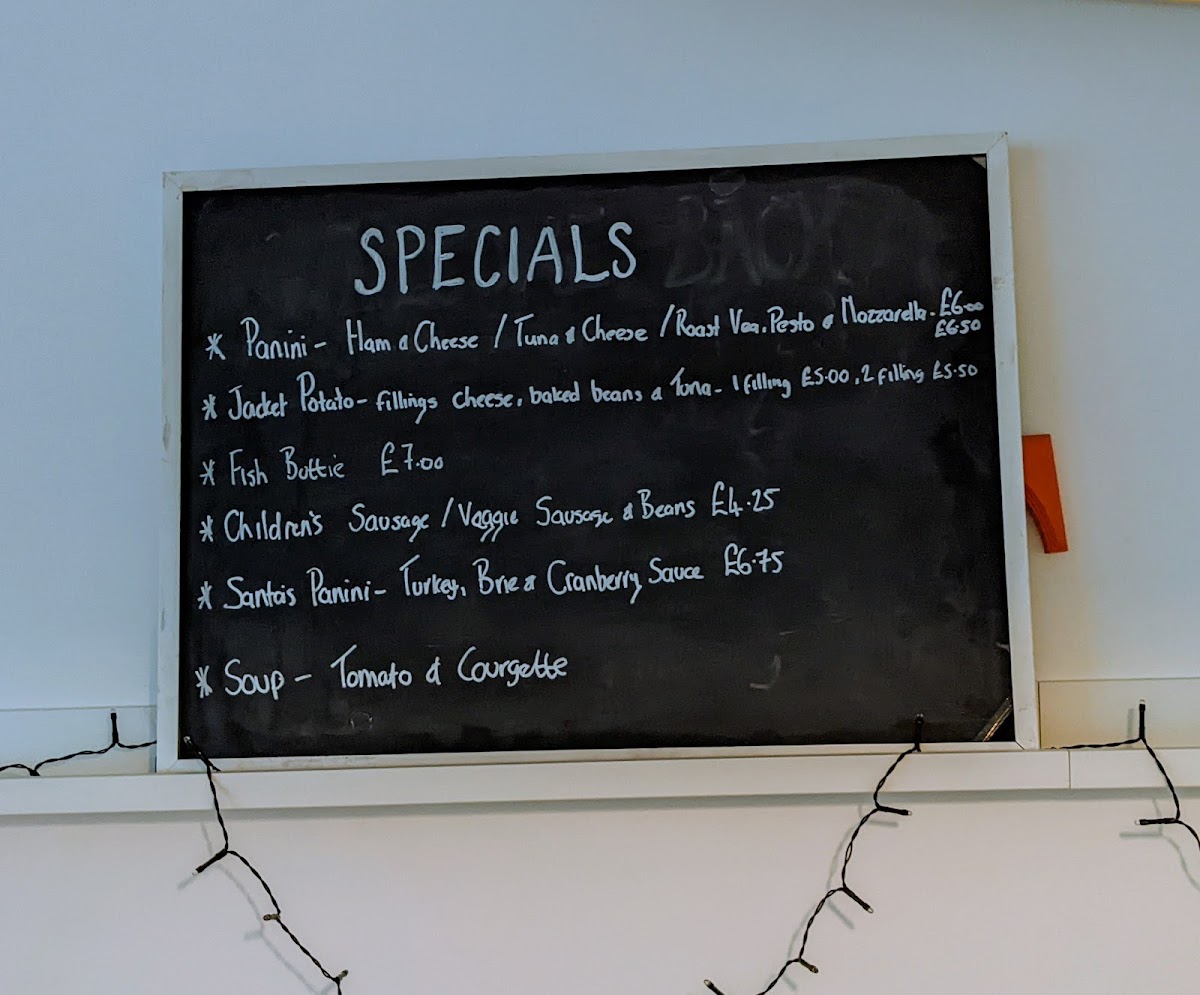 SPECIALS
* Panini - Ham & Cheese / Tuna & Cheese / Roast Veg, Pesto & Mozzarella - £6.00
£6.50
* Jacket Potato - fillings cheese, baked beans & Tuna - 1 filling £5.00, 2 filling £5.50
* Fish Buttie £7.00
* Children's Sausage / Veggie Sausage & Beans £4.25
* Santa's Panini - Turkey, Brie & Cranberry Sauce £6.75
* Soup - Tomato & Courgette